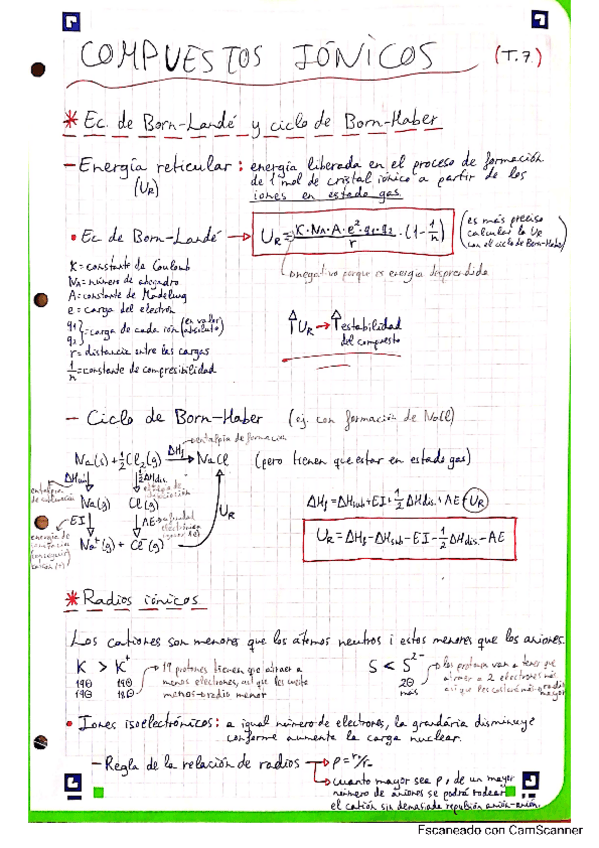 COMPUESTOS IÓNICOS (T.7.)
* Ec. de Born-Landé y ciclo de Born-Haber
- Energía reticular: energía liberada en el proceso de formación
(UR) de 1 mol de cristal iónico a partir de los
iones en estado gas.
• Ec de Born-Landé → UR = - K·NA·A·e²·q₁·q₂ / r · (1 - 1/n) (es más preciso
calcular la UR
con el ciclo de Born-Haber)
negativo porque es energía desprendida
K = constante de Coulomb
NA = número de abogadro
A = constante de Madelung
e = carga del electrón
q₁ q₂ } = carga de cada ión (en valor absoluto)
r = distancia entre las cargas
1/n = constante de compresibilidad
↑UR → ↑estabilidad
del compuesto
- Ciclo de Born-Haber (ej. con formación de NaCl)
entalpía de formación
Na(s) + 1/2 Cl₂(g) ΔHf → NaCl (pero tienen que estar en estado gas)
ΔHsub 1/2 ΔHdis.
entalpía
de sublimación
Na(g) Cl(g)
EI AE → afinidad
electrónica
UR
energía de
Na⁺(g) + Cl⁻(g)
ΔHf = ΔHsub + EI + 1/2 ΔHdis. + AE + UR
UR = ΔHf - ΔHsub - EI - 1/2 ΔHdis. - AE
* Radios iónicos
Los cationes son menores que los átomos neutros i estos menores que los aniones.
K > K⁺ → 19 protones tienen que atraer a
menos electrones, así que les cuesta
menos → radio menor
19⊕ 19⊕
19⊖ 18⊖
S < S²⁻ → los protones van a tener que
atraer a 2 electrones más
así que les costará más → radio
mayor
2⊖
más
• Iones isoelectrónicos: a igual número de electrones, la grandària disminuye
conforme aumenta la carga nuclear.
- Regla de la relación de radios → ρ = r⁺/r₋
→ cuanto mayor sea ρ, de un mayor
número de aniones se podrá rodear
el catión sin demasiada repulsión anión-anión.
Escaneado con CamScanner